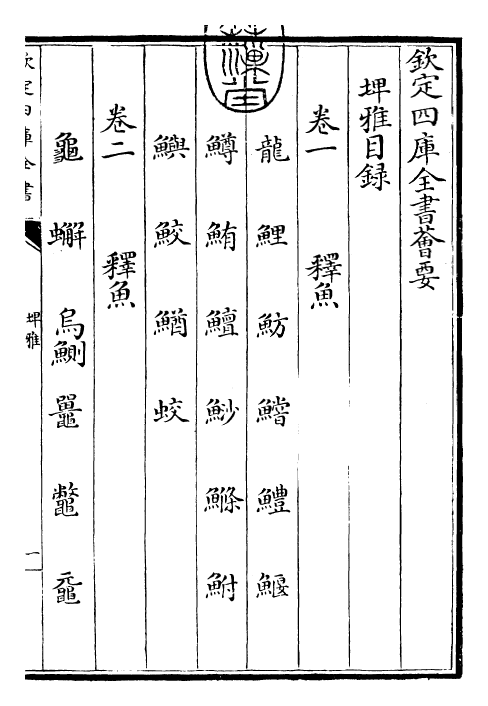 欽定四庫全書薈要
埤雅目録
卷一　釋魚
龍　鯉　魴　鱨　鱧　鰋
鱒　鮪　鱣　鯊　鰷　鮒
鱮　鮫　鰌　蛟
卷二　釋魚
龜　蠏　烏鰂　鼉　鼈　黿
欽定四庫全書
埤雅
一